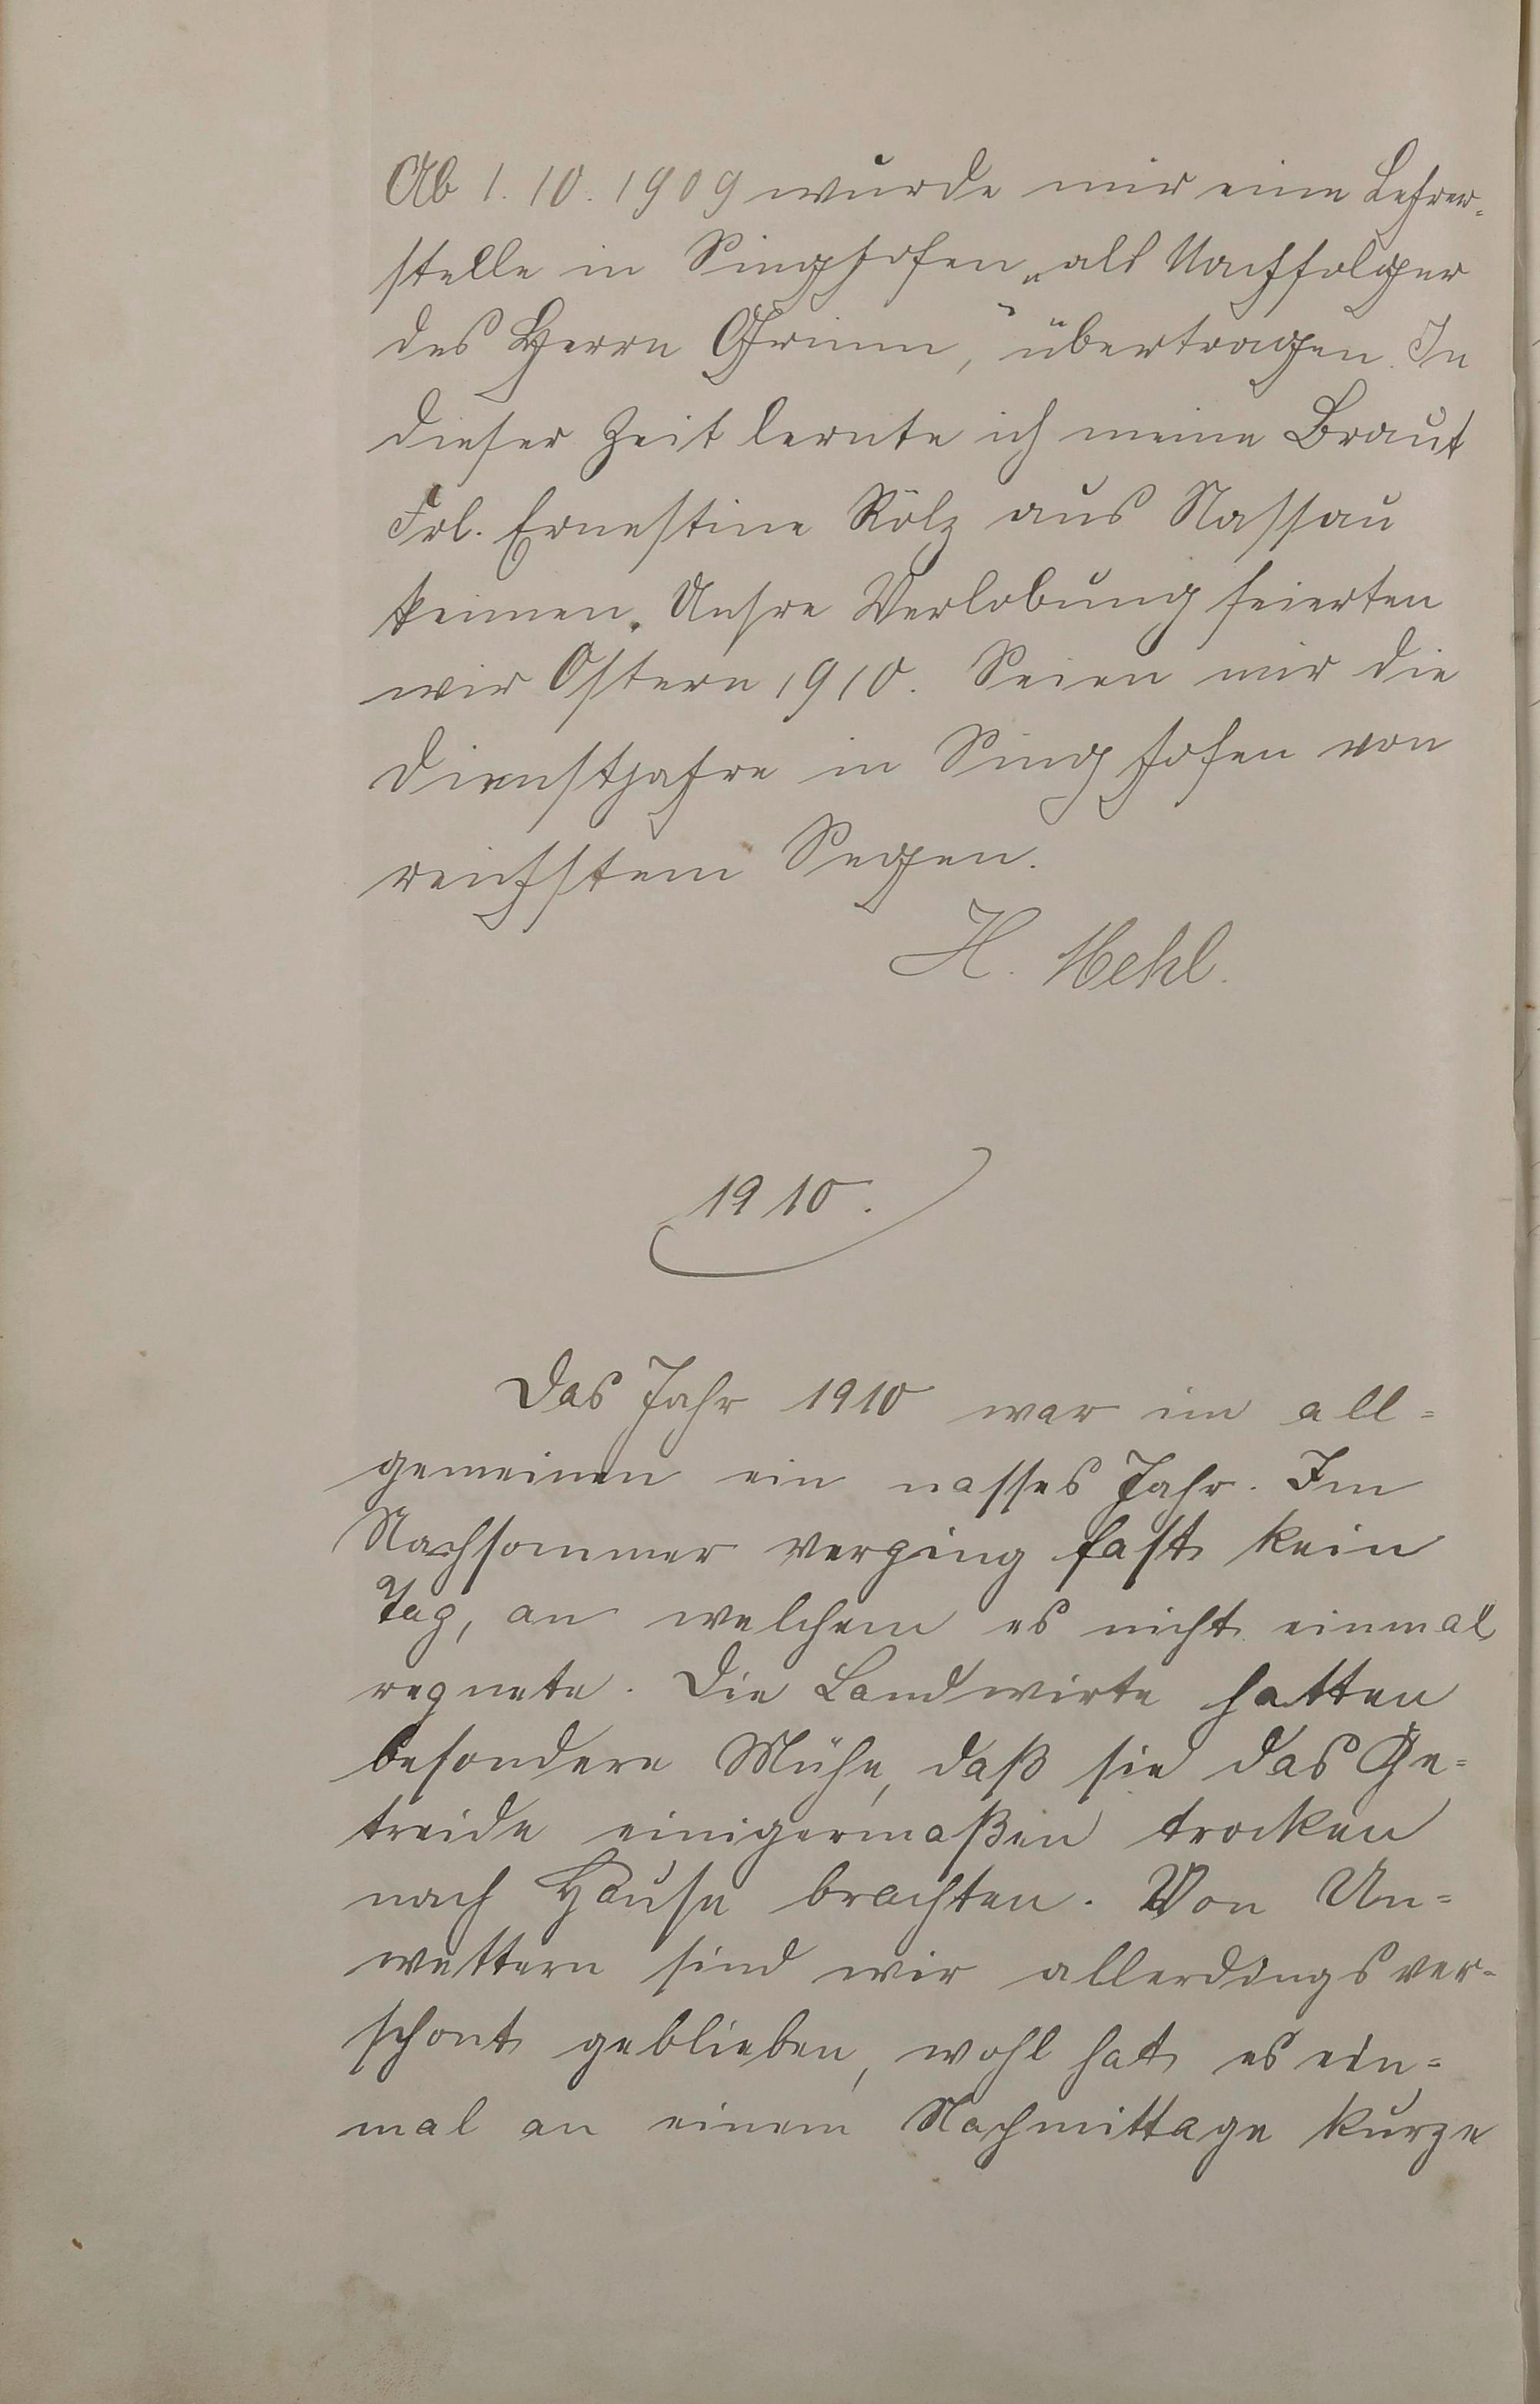 Ab 1. 10. 1909 wurde mir eine Lehrer-
stelle in Singhofen „als Nachfolger
des Herrn Grimm,“ übertragen. In
dieser Zeit lernte ich meine Braut
Frl. Ernestine Rölz aus Nassau
kennen. Unsre Verlobung feierten
wir Ostern 1910. Seien mir die
Dienstjahre in Singhofen von
reichstem Segen.
H. Mehl.
1910.
Das Jahr 1910 war im all=
gemeinen ein nasses Jahr. Im
Nachsommer verging fast kein
Tag, an welchem es nicht einmal
regnete. Die Landwirte hatten
besondere Mühe, daß sie das Ge=
treide einigermaßen trocken
nach Hause brachten. Von Un=
wettern sind wir allerdings ver-
schont geblieben, wohl hat es ein=
mal an einem Nachmittage kurze